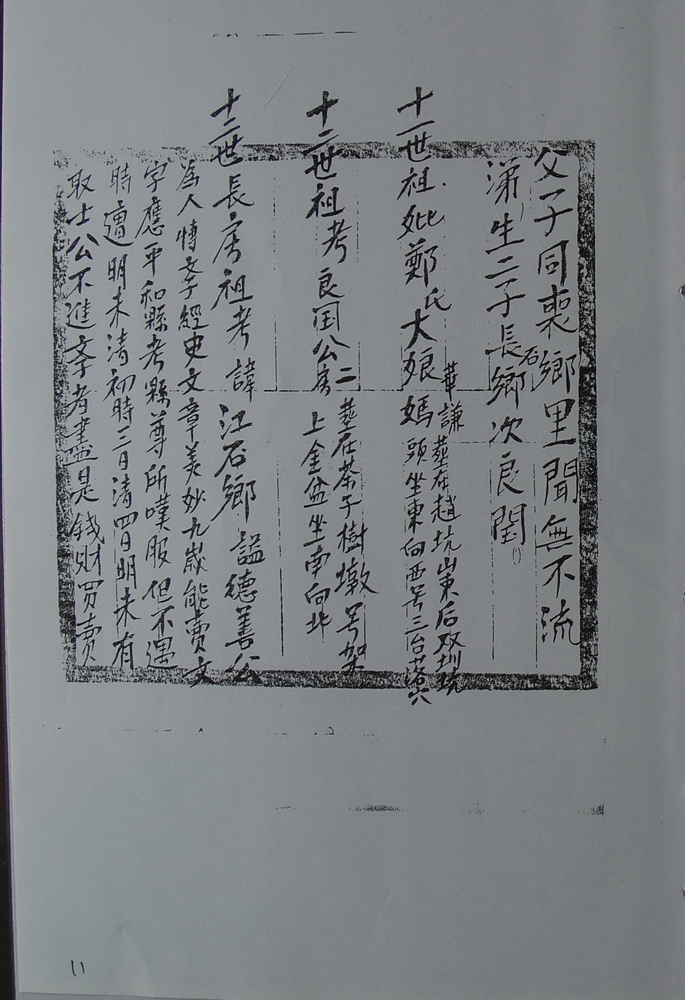 父子同喪鄉里聞無不流
涕生二子長石鄉次良閏
十一世祖妣鄭氏大娘媽
華謙葬在趙坑崠后双圳坑
頭坐東向西号三台落穴
十二世祖考良閏公二房
葬在茶子樹墩号架
上金盆坐南向北
十二世長房祖考諱江石鄉謚德善公
為人博文孝經史文章美妙九歲能賣文
字應平和縣考縣尊所嘆服但不遇
時遭明末清初時三日清四日明未有
取士公不進孝者盡是錢財買賣
11